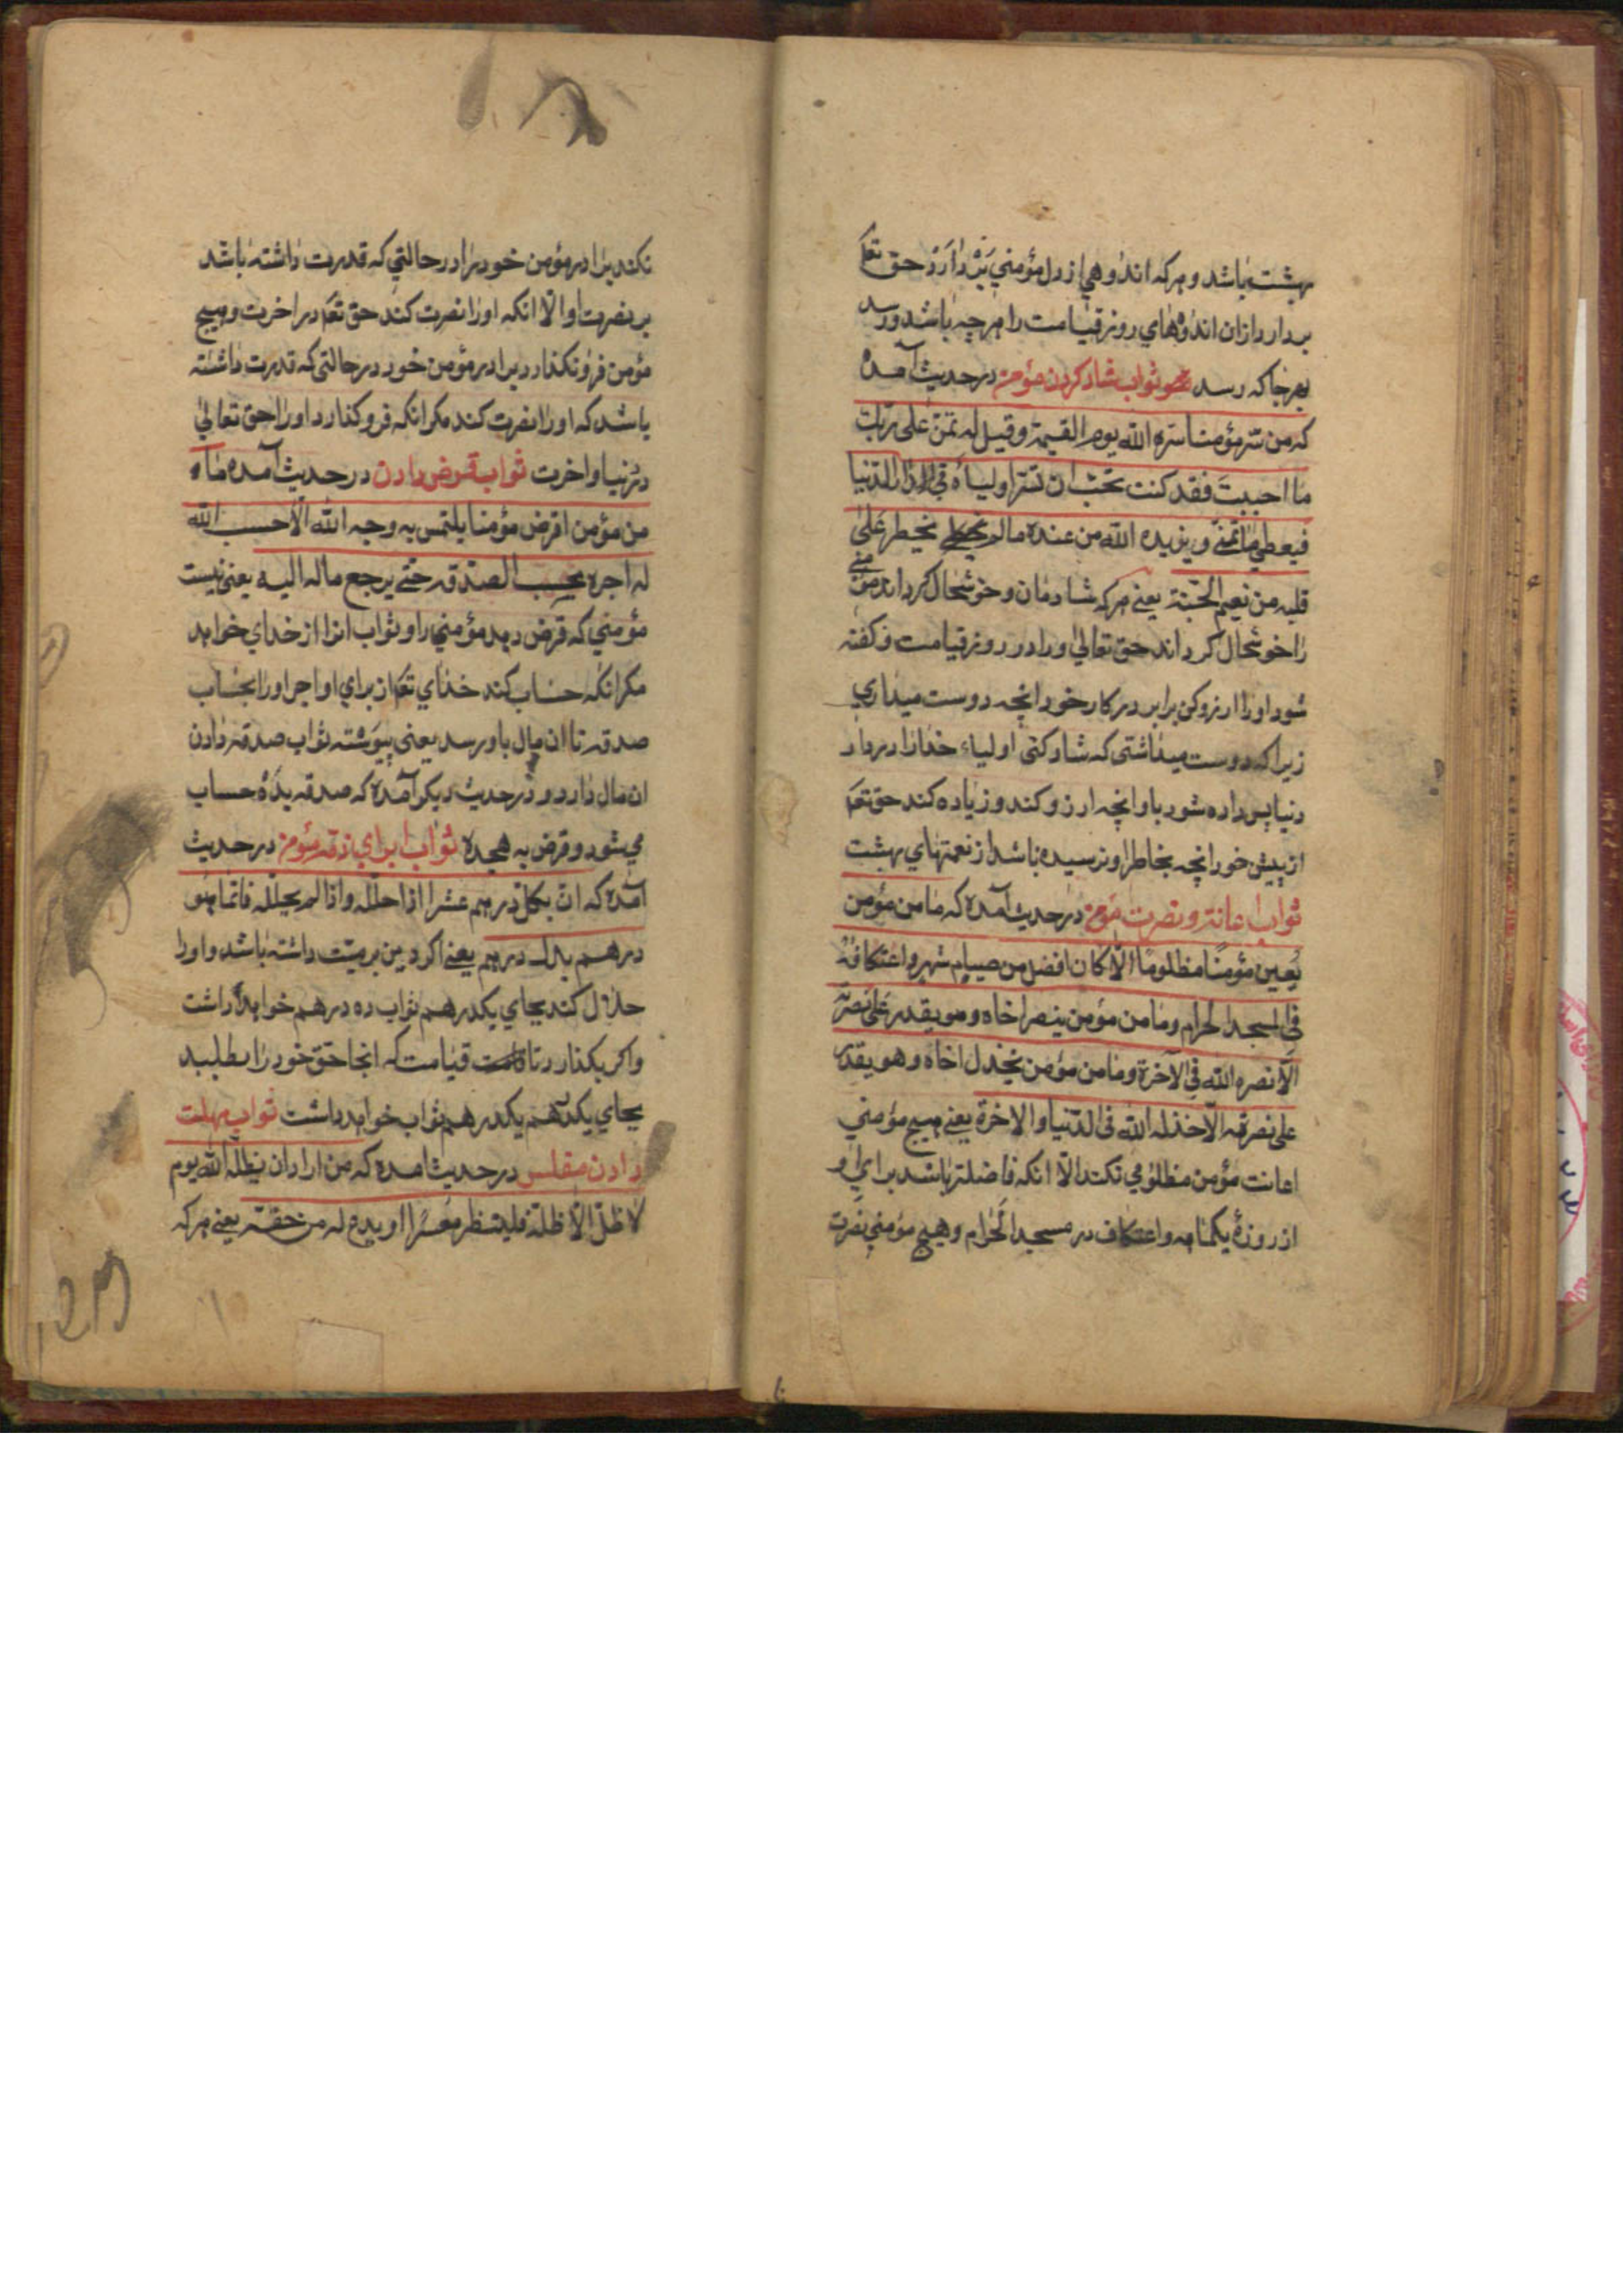 بهشت باشد و هر که اندوهی از دل مؤمنی بردارد حق تعا
بردارد از ان اندوههای روز قیامت را هر چه باشد و رسد
بهر جا که رسد ثواب شاد کردن مؤمن در حدیث آمده
که من سر مؤمنا سره الله یوم القیمة و قیل له تمن علی ربک
ما احببت فقد کنت تحب ان تسر اولیاءه فی الدار الدنیا
فیعطی ما تمنی و یزیده الله من عنده ما لم یخطر علی
قلبه من نعیم الجنة یعنی هر که شادمان و خوشحال کرداند مؤمنی
را خوشحال کرداند حق تعالی او را در روز قیامت و کفته
شود او را ارزو کن برابر در کار خود انچه دوست میداری
زیرا که دوست میداشتی که شاد کنی اولیاء خدا را در دار
دنیا پس داده شود باو انچه ارزو کند و زیاده کند حق تعم
از پیش خود انچه بخاطر او نرسیده باشد از نعمتهای بهشت
ثواب اعانة و نصرت مؤمن در حدیث آمده که ما من مؤمن
یعین مؤمنا مظلوما الا کان افضل من صیام شهر و اعتکافه
فی المسجد الحرام و ما من مؤمن ینصر اخاه و هو یقدر علی نصرته
الا نصره الله فی الآخرة و ما من مؤمن یخذل اخاه و هو یقدر
علی نصرته الا خذله الله فی الدنیا و الاخرة یعنی هیچ مؤمنی
اعانت مؤمن مظلومی نکند الا انکه فاضلتر باشد برای او
از روزهٔ یکماهه و اعتکاف در مسجد الحرام و هیچ مؤمنی نصرت
نکند برادر مؤمن خود را در حالتی که قدرت داشته باشد
بر نصرت او الا انکه او را نصرت کند حق تعم در اخرت و هیچ
مؤمن فرو نکذارد برادر مؤمن خود در حالتی که قدرت داشته
باشد که او را نصرت کند مکر انکه فرو کذارد او را حق تعالی
در دنیا و اخرت ثواب قرض دادن در حدیث آمده ما
من مؤمن اقرض مؤمنا یلتمس به وجه الله الا حسب الله
له اجره بحسب الصدقه حتی یرجع ماله الیه یعنی نیست
مؤمنی که قرض دهد مؤمنی را و ثواب انرا از خدای خواهد
مکر انکه حساب کند خدای تعم از برای او اجر او را بحساب
صدقه تا ان مال باو رسد یعنی پیوسته ثواب صدقه دادن
ان مال دارد و در حدیث دیکر آمده که صدقه بده حساب
می شود و قرض به هجده ثواب ابرای ذمه مؤمن در حدیث
آمده که ان بکل درهم عشرا اذا حلله و اذا لم یحلله فانما هو
درهم بدل درهم یعنی اکر دین بر میت داشته باشد و او را
حلال کند بجای یکدرهم ثواب ده درهم خواهد داشت
و اکر بکذارد تا قیامت که انجا حق خود را بطلبد
بجای یکدرهم یکدرهم ثواب خواهد داشت ثواب مهلت
دادن مفلس در حدیث امده که من اراد ان یظله الله یوم
لا ظل الا ظله فلینظر معسرا او یدع له من حقه یعنی هر که